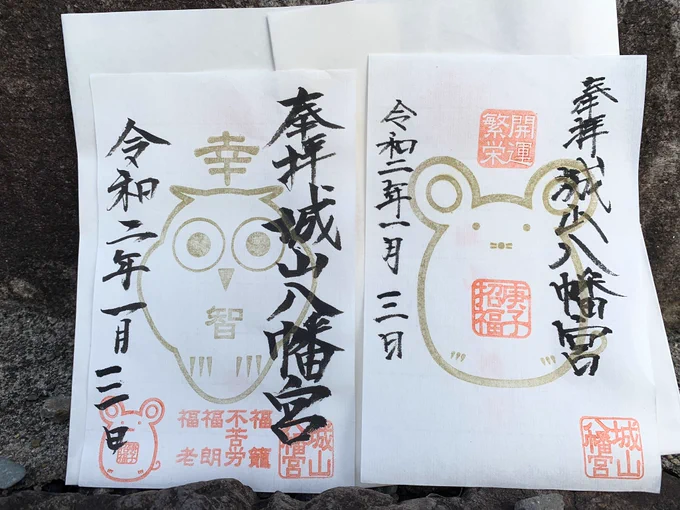 奉拝 城山八幡宮
幸
智
令和二年一月三日
福 不苦労 福 福
籠 朗 老
城山八幡宮
奉拝 城山八幡宮
開運
繁栄
庚子
招福
令和二年一月三日
城山
八幡宮